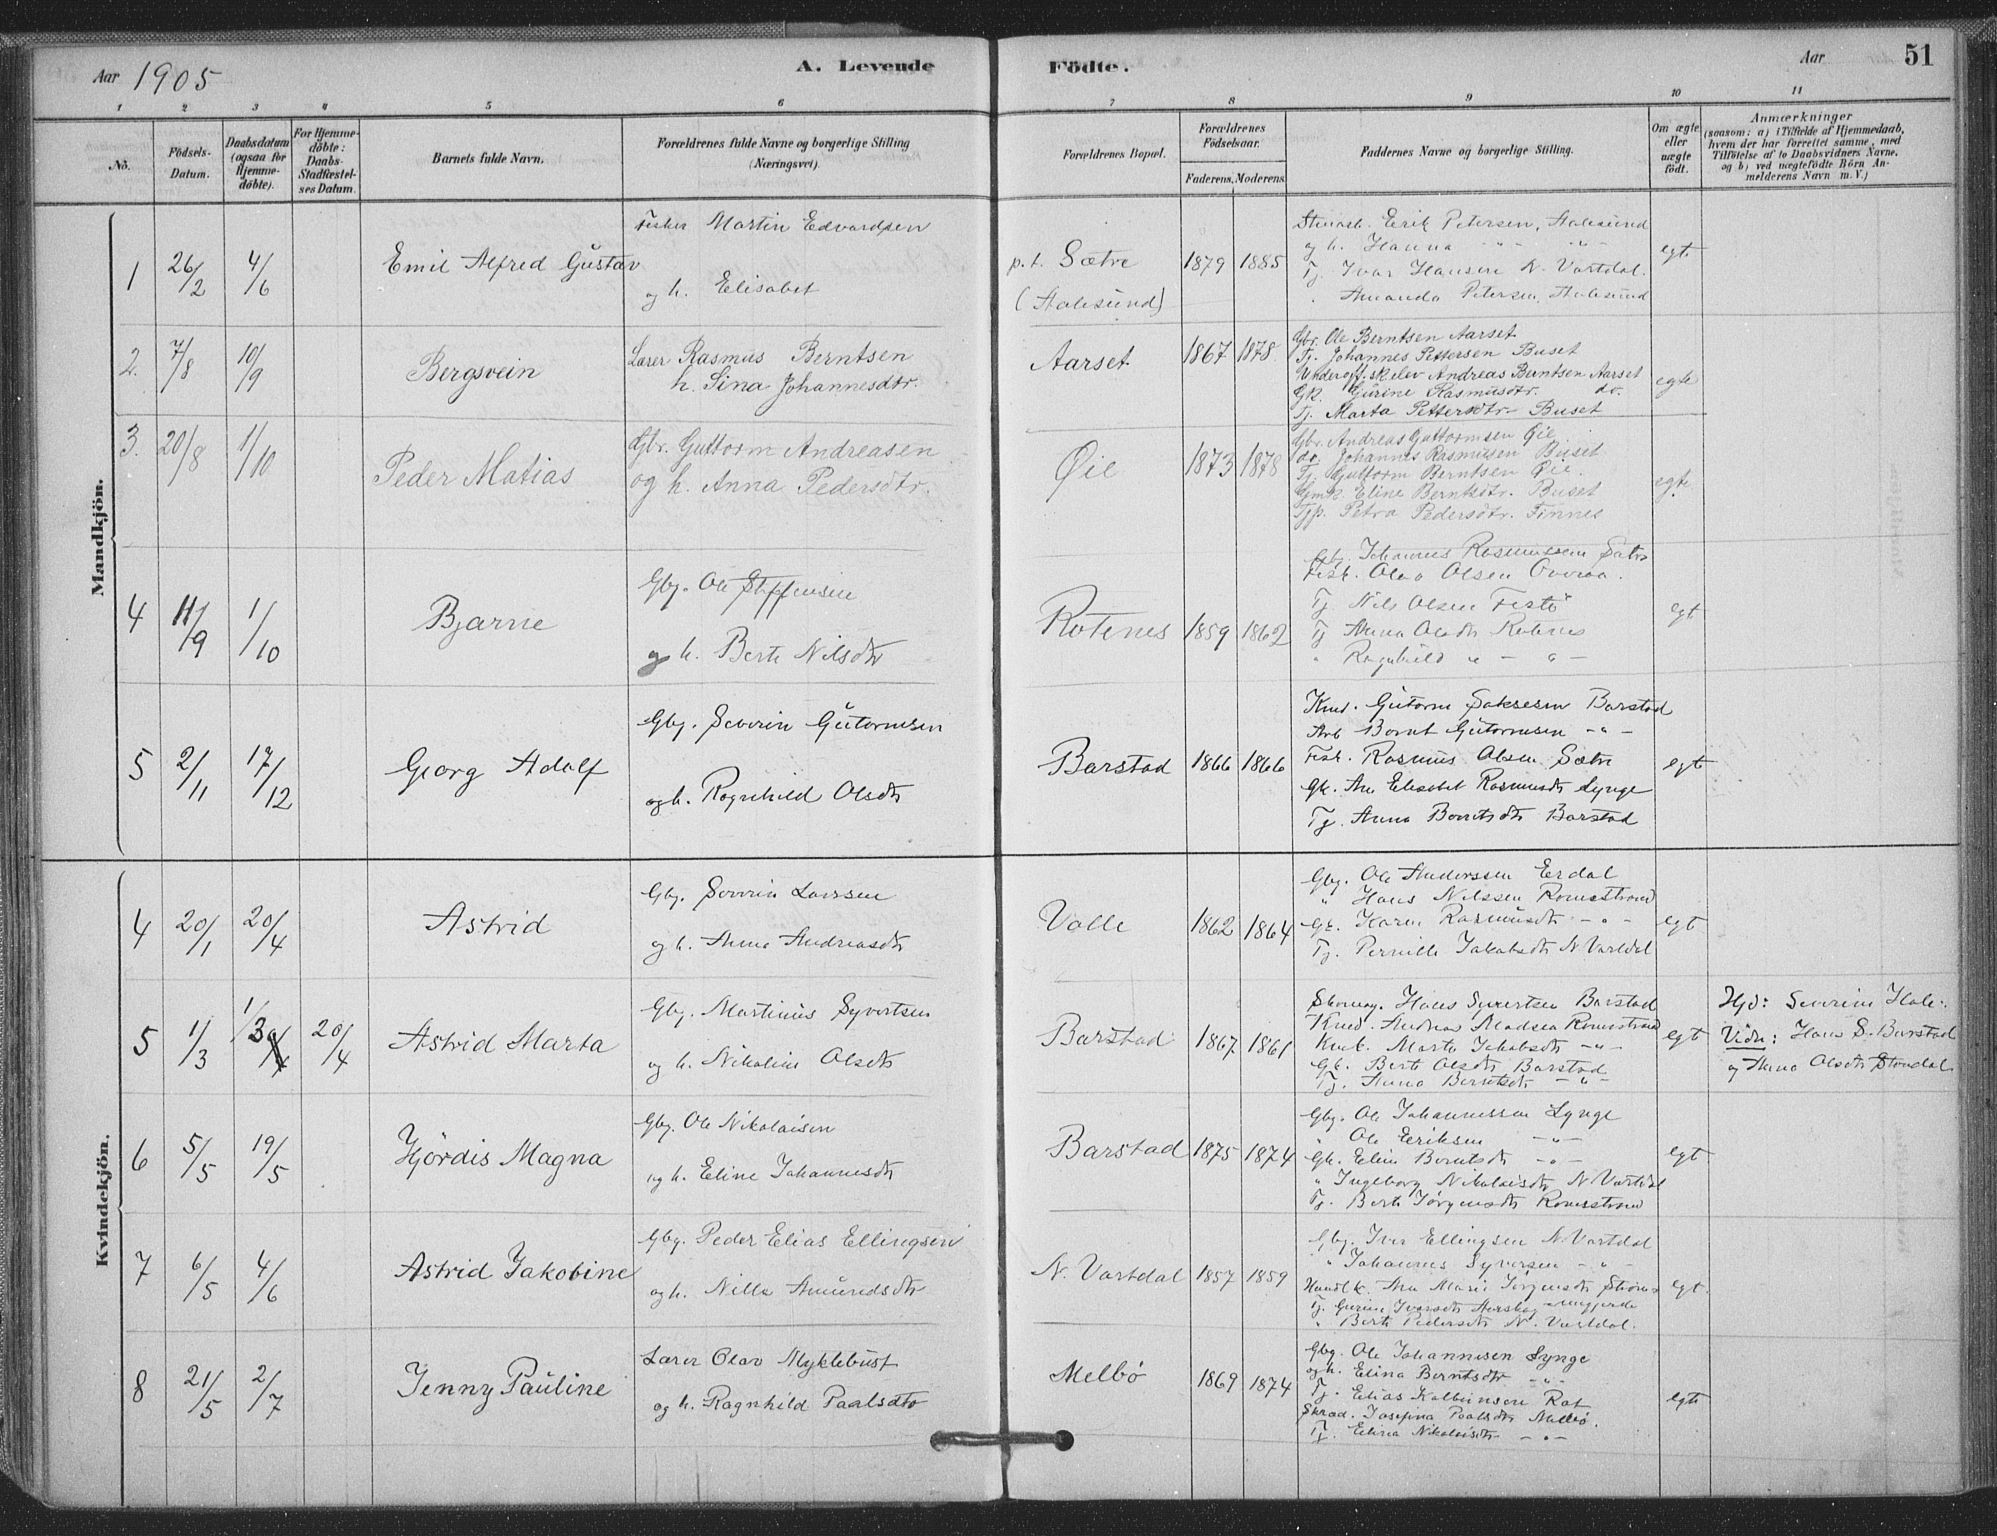 Aar 1905
A. Levende
Födte.
Aar
51
1 2 3 4 5 6 7 8 9 10 11
No.
Födsels-Datum.
Daabsdatum (ogsaa for Hjemme-döbte).
For Hjemme-döbte: Daabs-Stadfæstelses Datum.
Barnets fulde Navn.
Forældrenes fulde Navne og borgerlige Stilling (Næringsvei).
Forældrenes Bopæl.
Forældrenes Födselsaar.
Faderens. Moderens.
Faddernes Navne og borgerlige Stilling.
Om ægte eller uægte födt.
Anmærkninger
(saasom: a) i Tilfælde af Hjemmedaab, hvem der har forrettet samme, med Tilföielse af to Daabsvidners Navne, og b) ved uægtefödte Börn Anmelderens Navn m. V.)
Mandkjön.
1 26/2 4/6 Emil Alfred Gustav
Fisker Martin Edvardsen
og h. Elisabet
p. t. Sætre
(Aalesund)
1879 1885
Erik Petersen, Aalesund
og h. Hanna " "
Tj. Ivar Hansen N. Vartdal.
" Amanda Petersen, Aalesund
egt.
2. 7/8 10/9 Bergsvein
Lærer Rasmus Berntsen
h. Sina Johannesdtr.
Aarset
1867 1878.
Gbr. Ole Berntsen Aarset.
Tj. Johannes Pettersen Buset
Underoff.skelev Andreas Berntsen Aarset
Gk. Gurine Rasmusdtr. do.
Tj. Marta Pettersdtr. Buset
egte
3. 20/8 1/10 Peder Matias
Gbr. Guttorm Andreasen
og h. Anna Pedersdtr.
Øie
1873 1878
Gbr. Andreas Guttormsen Øie.
do. Johannes Rasmusen Buset
Tj. Guttorm Berntsen Øie.
Gmk. Eline Berntsdtr. Buset
Petra Pedersdtr. Finnes
egte.
4 11/9 1/10 Bjarne
Gbg. Ole Steffensen
og h. Berte Nilsdtr
Rotenes
1859 1862
Gbg. Johannes Rasmussen Sætre
Fisk. Olav Olsen Overaa.
Tj Nils Olsen Festö
Tj Anna Olsdtr Rotenes
" Ragnhild " - " -
egt
5 2/11 17/12 Georg Adolf
Gbg. Severin Gutormsen
og h. Ragnhild Olsdtr
Barstad
1866 1866
Gutorm Saksesen Barstad
Arb Bernt Gutormsen - " -
Fisk. Rasmus Olsen Sætre
Gk. Ane Elisabet Rasmusdtr Lynge
Tj. Anna Berntsdtr Barstad
egt
Kvindekjön.
4 20/1 20/4 Astrid
Gbg. Severin Larssen
og h. Anne Andreasdtr
Valle
1862 1864
Gbg. Ole Anderssen Erdal
" Hans Nilssen Romestrand
Gk. Karen Rasmusdtr - " -
Tj. Pernille Jakobsdtr N. Vartdal
egt
5 1/3 20/4 Astrid Marta
Gbg. Martinus Syvertsen
og h. Nikoline Olsdtr
Barstad
1867 1861
Hans Syvertsen Barstad
Andreas Madsen Romestrand
Marte Jakobsdtr - " -
Gk. Berte Olsdtr Barstad
Tj. Anna Berntsdtr - " -
egt
Hjd: Severine Hole.
Vidn: Hans S. Barstad
og Anna Olsdtr
6 5/5 19/5 Hjördis Magna
Gbg. Ole Nikolaisen
og h. Eline Johannesdtr
Barstad
1875 1874
Gbg. Ole Johannessen Lynge
" Ole Eriksen - " -
Gk. Eline Berntsdtr - " -
" Ingeborg Nikolaisdtr N. Vartdal
Tj. Berte Jørgensdtr Romestrand
egt
7 6/5 4/6 Astrid Jakobine
Gbg. Peder Elias Ellingsen
og h. Nille Amundsdtr
N. Vartdal
1857 1859
Gbg. Iver Ellingsen N. Vartdal
" Johannes Syversen - " -
Ane Marie Jørgensdtr
Tj. Gurine Ivarsdtr
" Berte Pedersdtr N. Vartdal.
egt.
8 21/5 2/7 Jenny Pauline
Lærer Olav Myklebust
og h. Ragnhild Paalsdtr
Melbö
1869 1874
Gbg. Ole Johannesen Lynge
og h. Elina Berntsdtr - " -
Tj. Elias Kolbeinsen
Josefina Paalsdtr Melbö.
Tj. Elina Nikolaisdtr - " -
egte